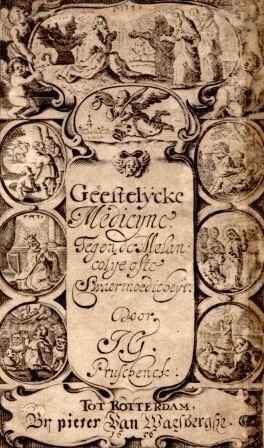 Geestelycke
Medicyne
Tegen de Melan-
colye ofte
Swaermoedicheyt.
Door
J. G.
Pruschenck.
TOT ROTTERDAM,
By pieter Van Waesberghe